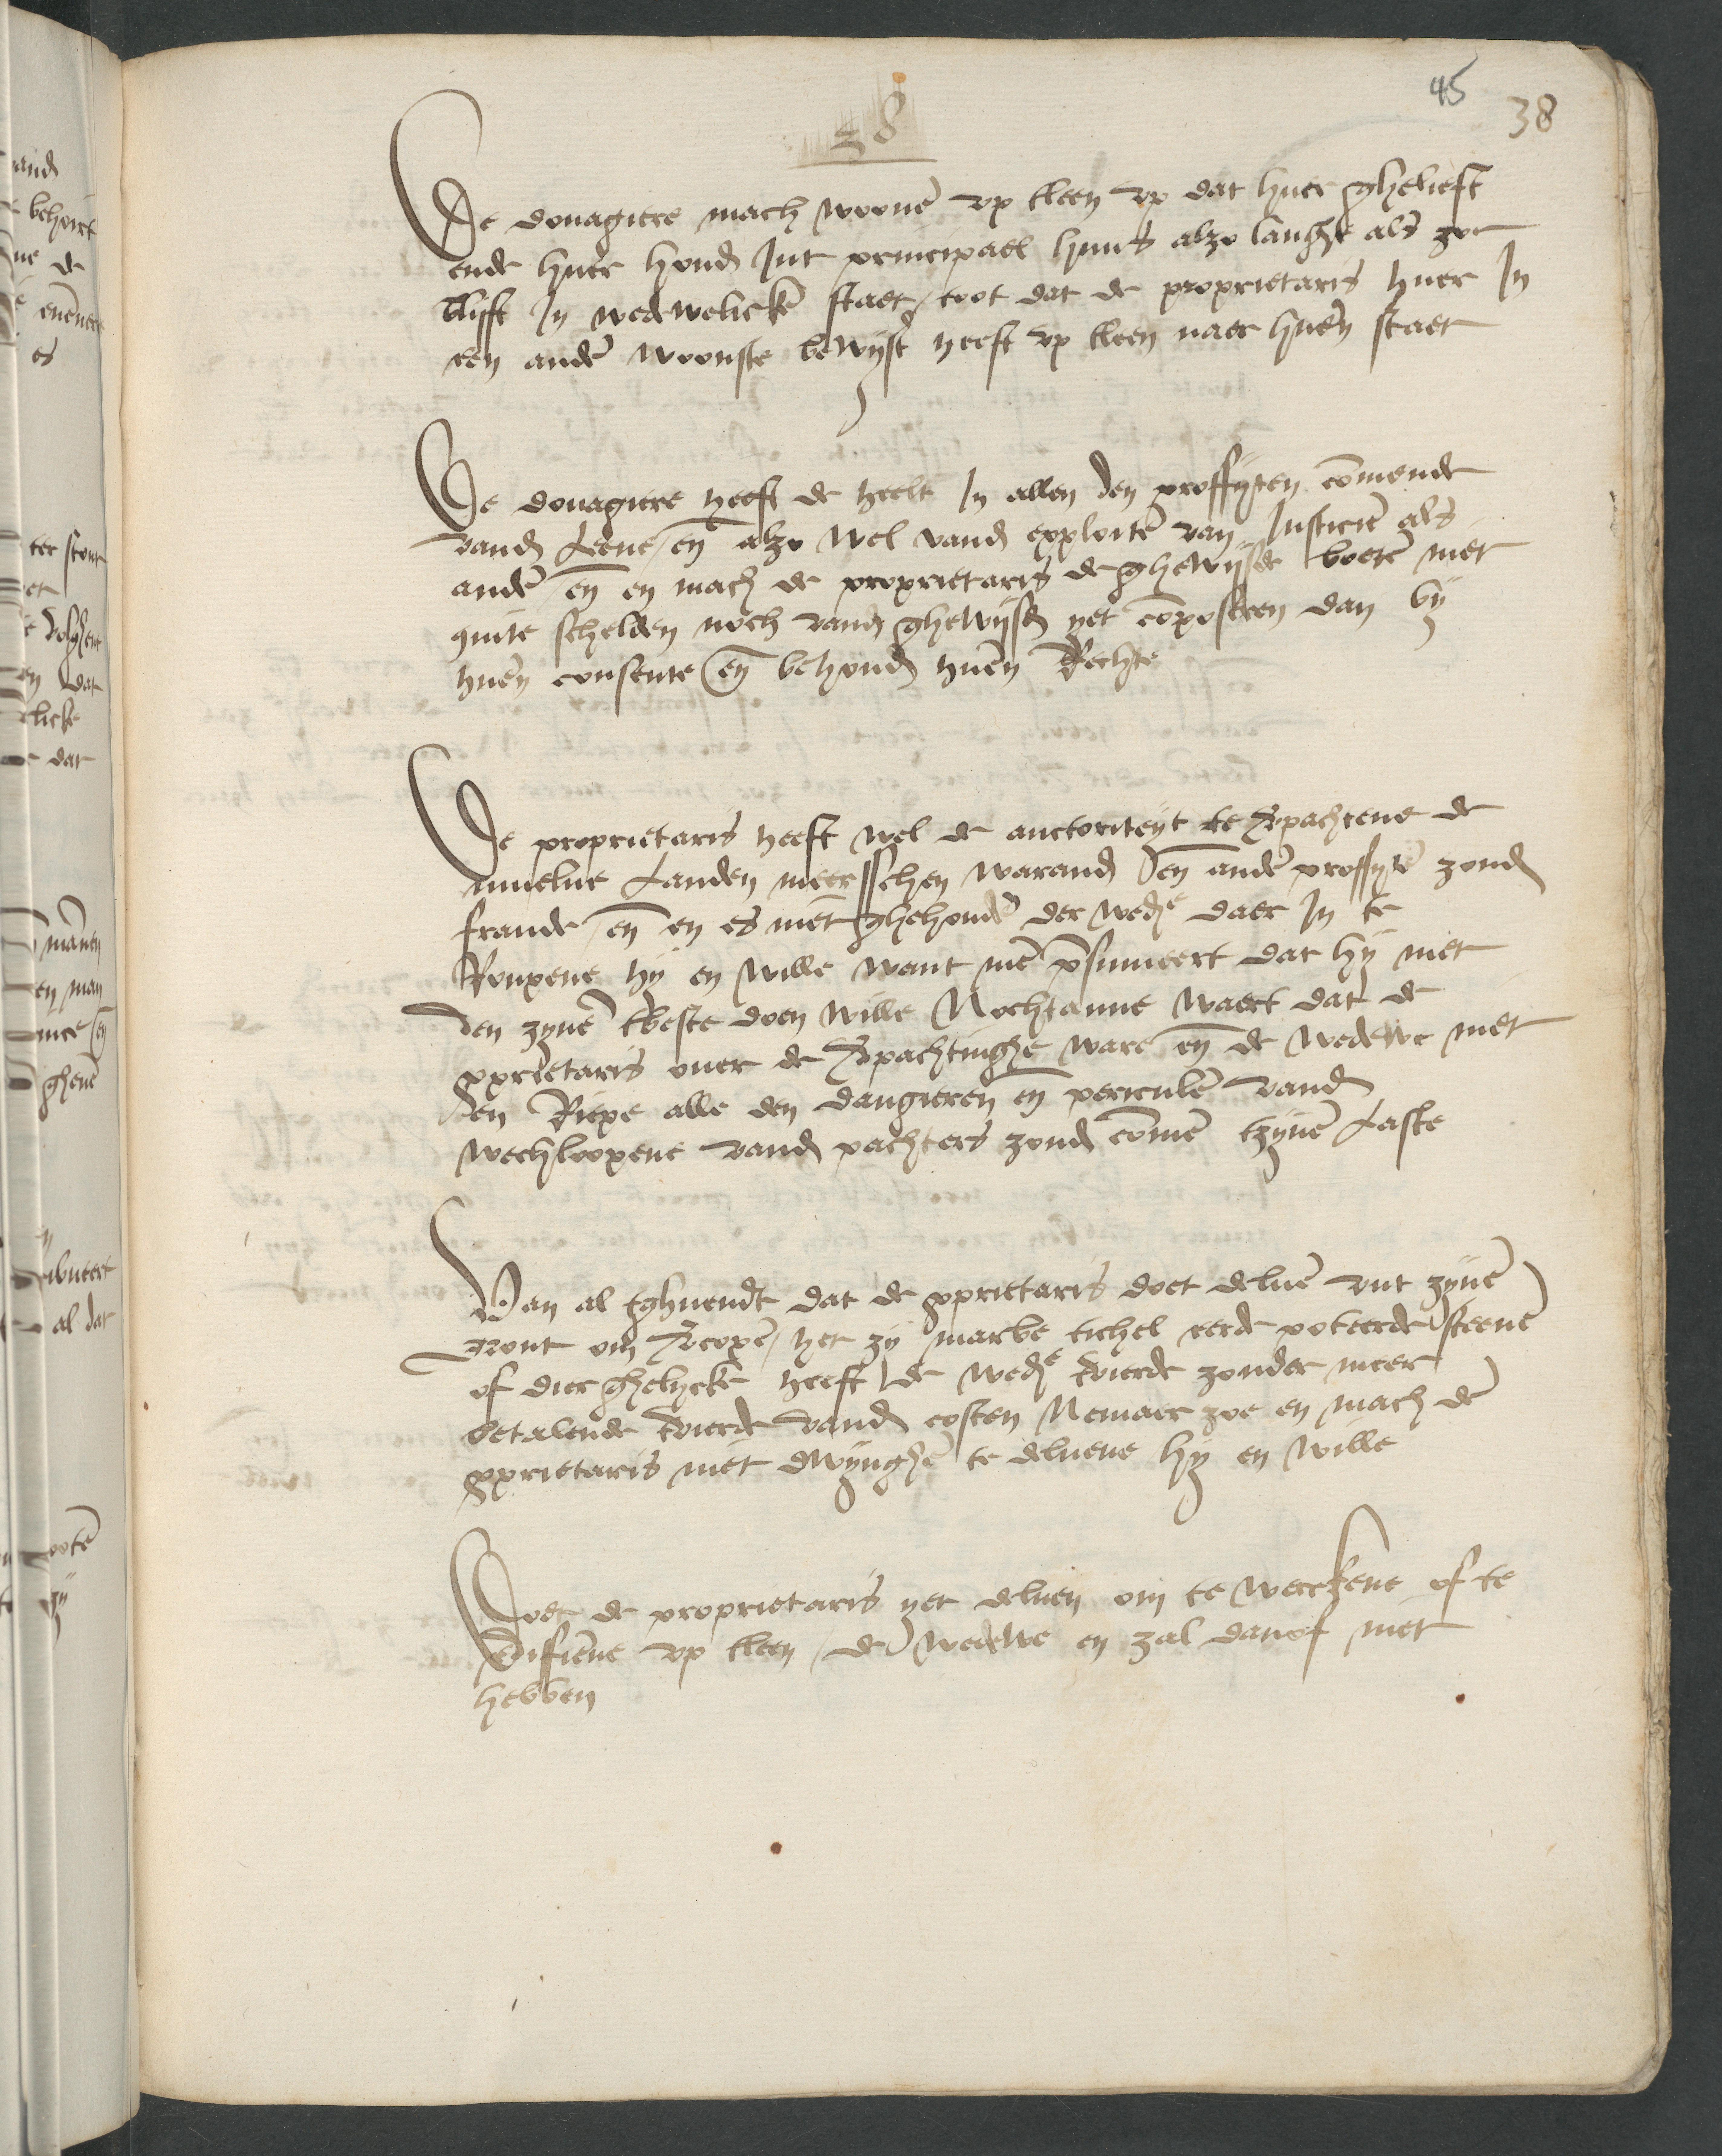 45
38
38
De douagiere mach woonē vp tleen vp dat huer ghelieft
ende huer houdē Int principael huus alzo langhe als zoe
blijft In wedewelicke staet / toot dat de proprietaris huer In
een andē woonste bewijst heeft vp tleen naer huerē staet
De douagiere heeft de heelt In allen den proffijten cōmende
vandē Leene / eñ alzo wel vandē exploitē van Justicie als
andē eñ en mach de proprietaris de ghewijsde boetē niet
quite schelden noch vandē ghewijsdē yet cōposeren dan bij
huerē consente eñ behoudē huerē Rechte
De proprietaris heeft wel de auctoriteyt te v̄pachtene de
muelne Landen meersschen warandē eñ andē proffytē zondē
fraude / eñ en es niet ghehoudē der wedᵉ daer In te
Roupene hij en wille want mē p̄sumeert dat hij niet
den zynē tbeste doen wille Nochtanne waert dat de
ꝓprietaris ouer de v̄pachtinghe ware eñ de wedewe niet
en Riepe alle den dangieren eñ periculē vandē
wechloopene vandē pachters zoudē cōmē tzynē Laste
Van al tghuendt dat de ꝓprietaris doet deluē vut zynē
gront om v̄coopē / het zij marbe tichel eerde poteerde steenē
of dier ghelycke heeft de wedᵉ tvierde zonder meer
betalende tvierde vandē costen Nemaer zoe en mach dē
ꝓprietaris niet dwynghē te deluene hy en wille
Doet de proprietaris yet deluen om te werckene of te
edifiēne vp tleen / de wedewe en zal danof niet
hebben